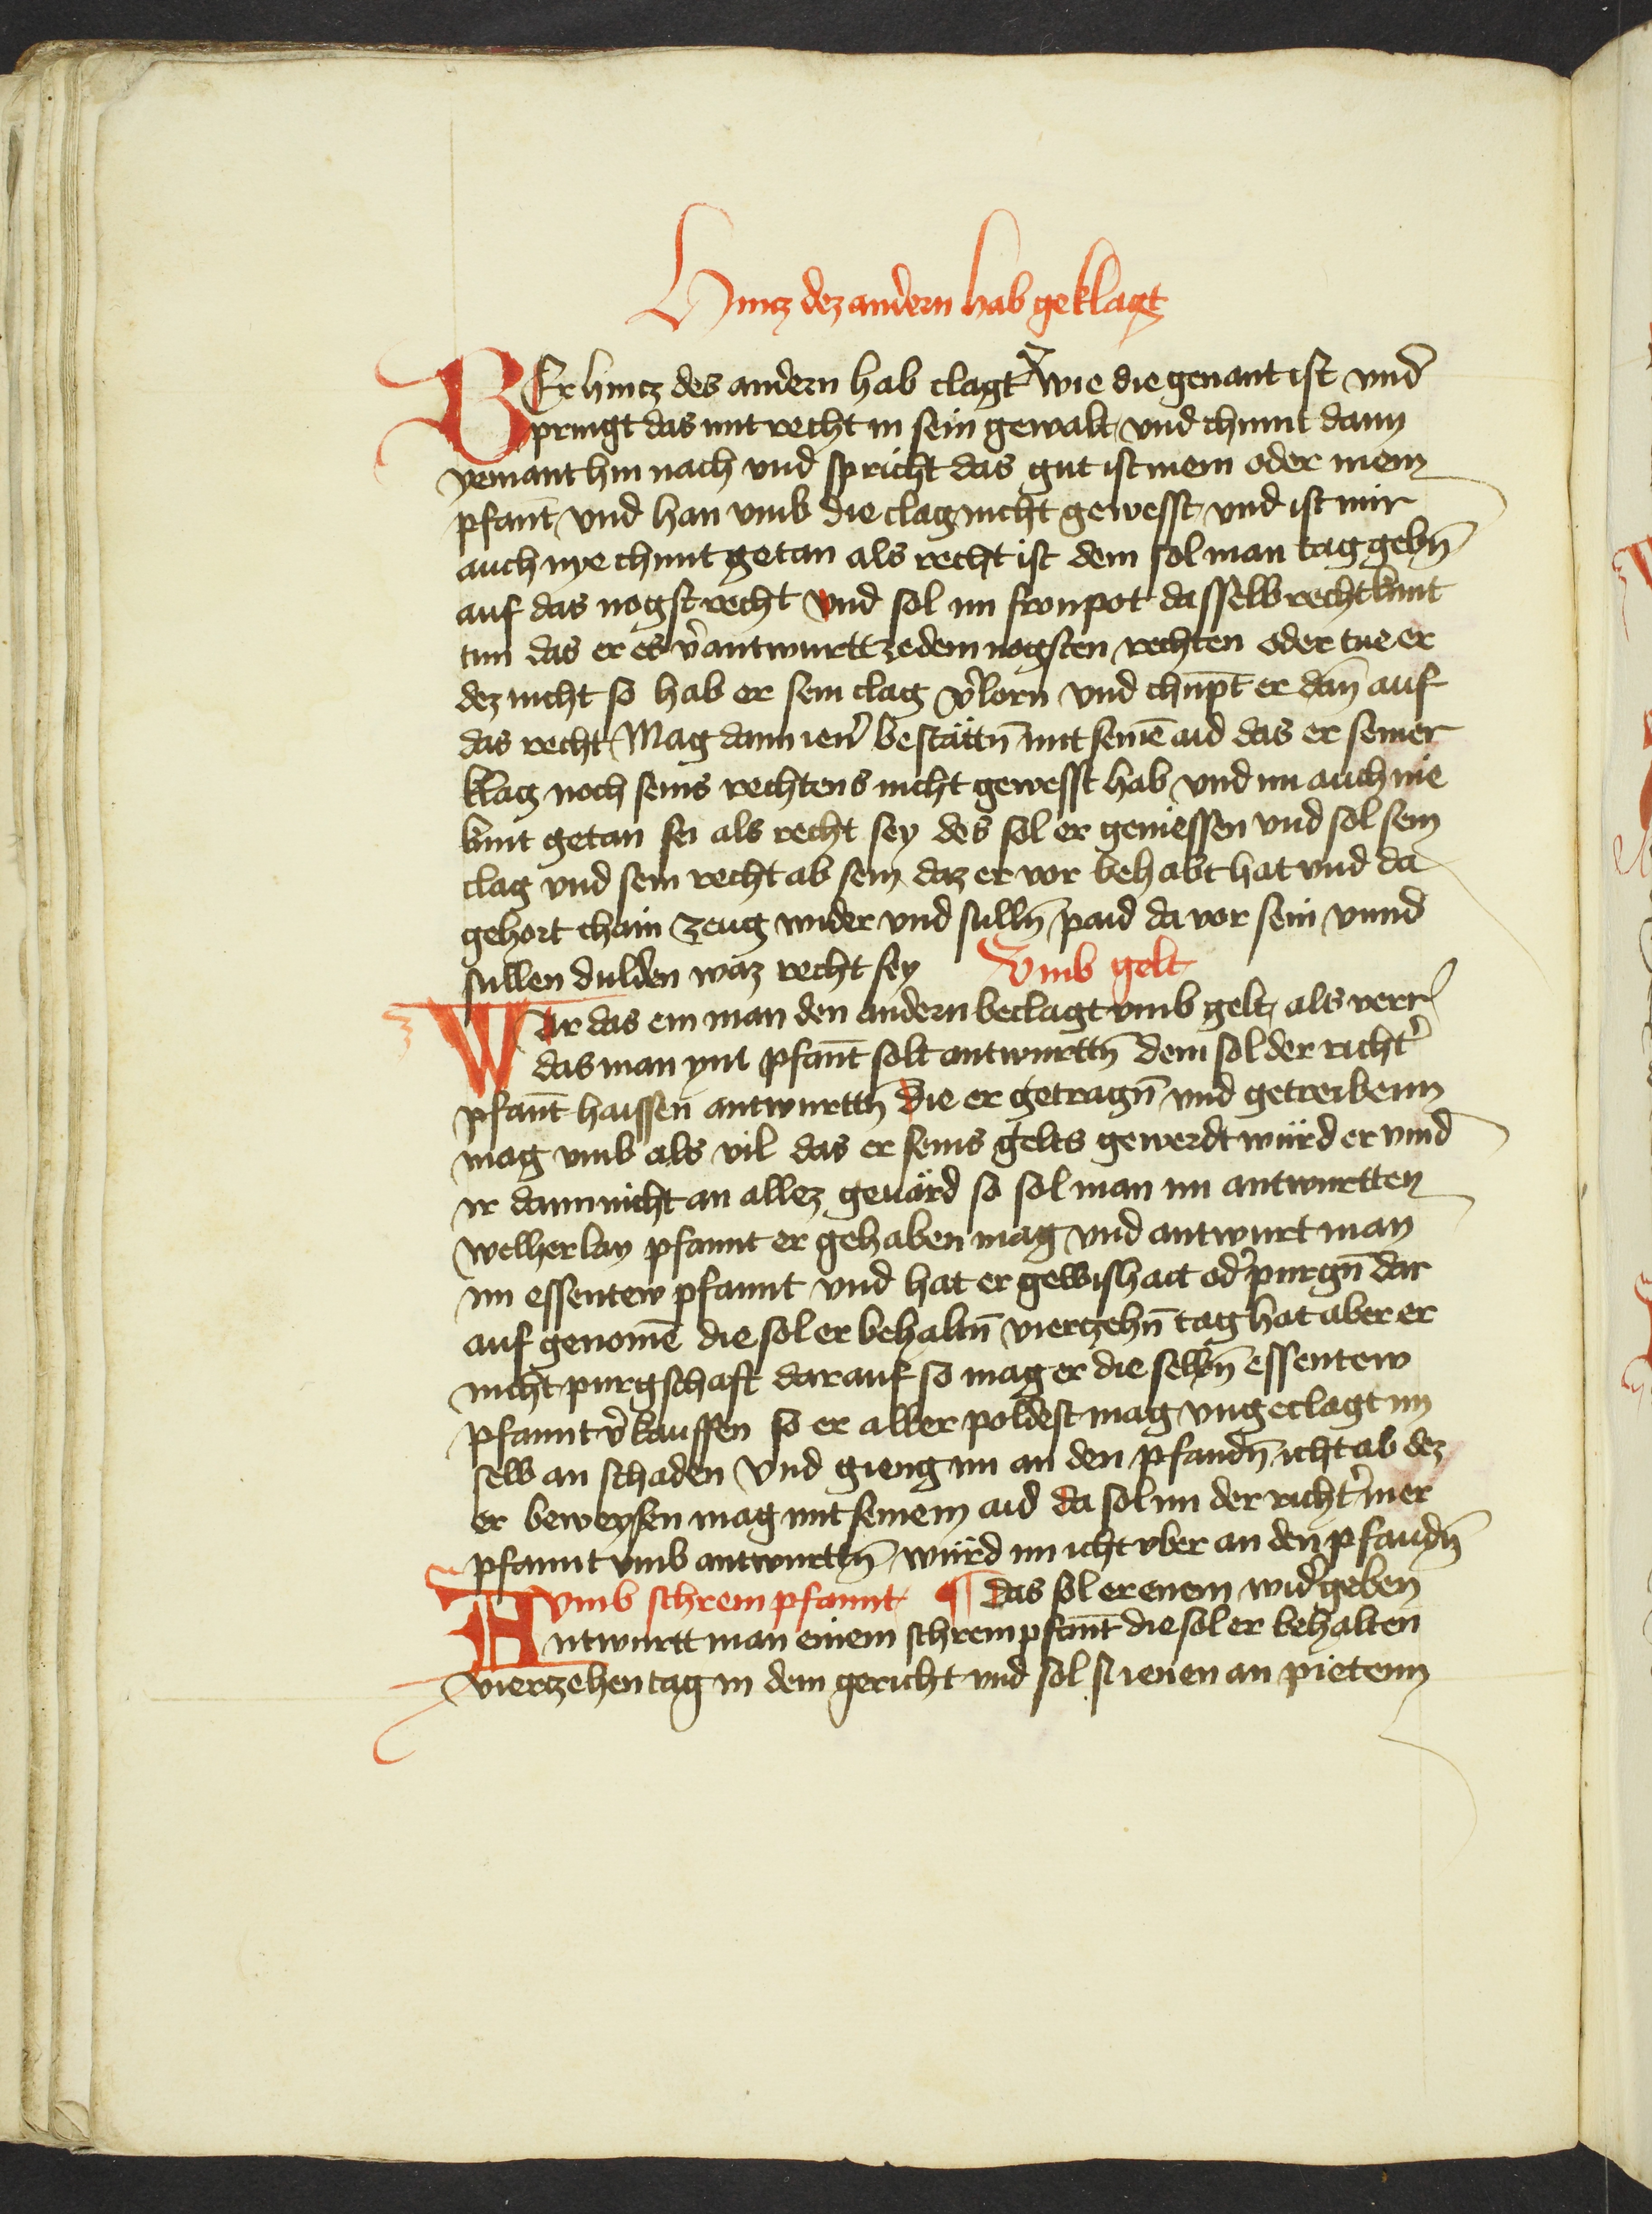 Hincz dez andern hab geklagt
WEr hincz des andern hab clagt wie die genant ist vnd
pringt das mit recht in sein gewalt vnd chumt dann
yemant hin nach vnd spricht das gut ist mein oder mein
pfant̄ vnd han vmb die clag nicht gewesst vnd ist mir
auch nye chunt getan als recht ist dem sol man tag gebn̄
auf das nogst recht vnd sol im fronpot dasselb recht kunt
tun das er es v̉antwurtt ze dem nogsten rechten oder tue er
dez nicht so hab er sein clag v̉lorn vnd chūpt er dan̄ auf
das recht Mag dann ien̉ bestättn̄ mit seinē aid das er seiner
klag noch seins rechtens nicht gewesst hab vnd im auch nie
kunt getan sei als recht sey des sol er geniessen vnd sol sein
clag vnd sein recht ab sein daz er vor behabt hat vnd da
gehort chain zeug wider vnd sulln̄ paid da vor sein vnnd
sullen dulden waz recht sey Vmb gelt
WAr das ein man den andern beclagt vmb gelt als verr
das man ym pfant̄ solt antwurttn̄ dem sol der richt̉
pfant̄ haissen antwurttn̄ die er getragn̄ vnd getreibenn
mag vmb als vil das er seins gelts gewerdt würd er vind
ir dann nicht an allez geuärd so sol man im antwurtten
welherlay pfannt er gehaben mag vnd antwurt man
im essentew pfannt vnd hat er gewishait od̉ purgn̄ dar
auf genomē die sol er behaltn̄ vierzehn̄ tag hat aber er
nicht purgschaft darauf so mag er die selbn̄ essentew
pfannt v̉kauffen so er aller poldest mag vngeclagt im
selb an schaden Vnd gieng im an den pfandn̄ icht ab dez
er beweysen mag mit seinem aid da sol im der richt̉ mer
pfannt vmb antwurttn̄ würd im icht vber an den pfandn̄
vmb schrempfannt ¶ das sol er enem wid̉geben
Antwurtt man einem schrempfant̄ die sol er behalten
vierzehen tag in dem gericht vnd sol si ienen an pietenn